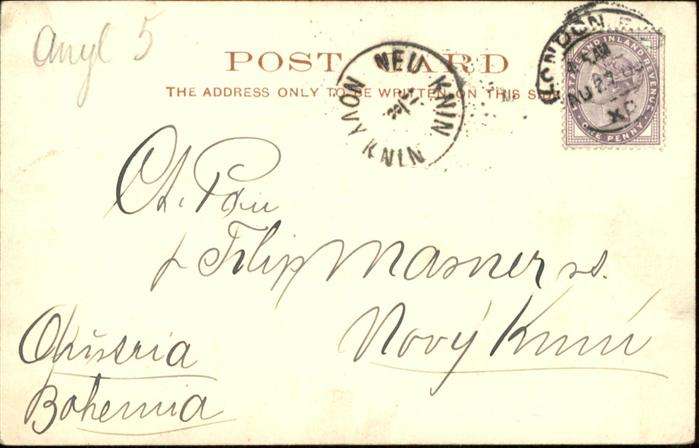 Angl 5
POST CARD
THE ADDRESS ONLY TO BE WRITTEN ON THIS
NEU KNIN
NOVÝ KNIN
LONDON
AU 27
XC
POSTAGE AND INLAND REVENUE
ONE PENNY
Ct. Pan
p Filip Masner
Nový Knín
Austria
Bohemia